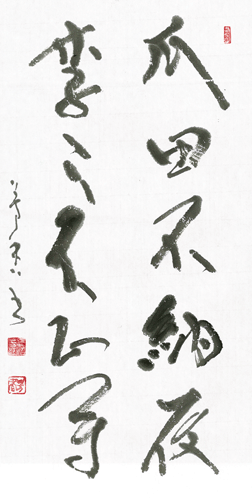 瓜田不納履
李下不正冠